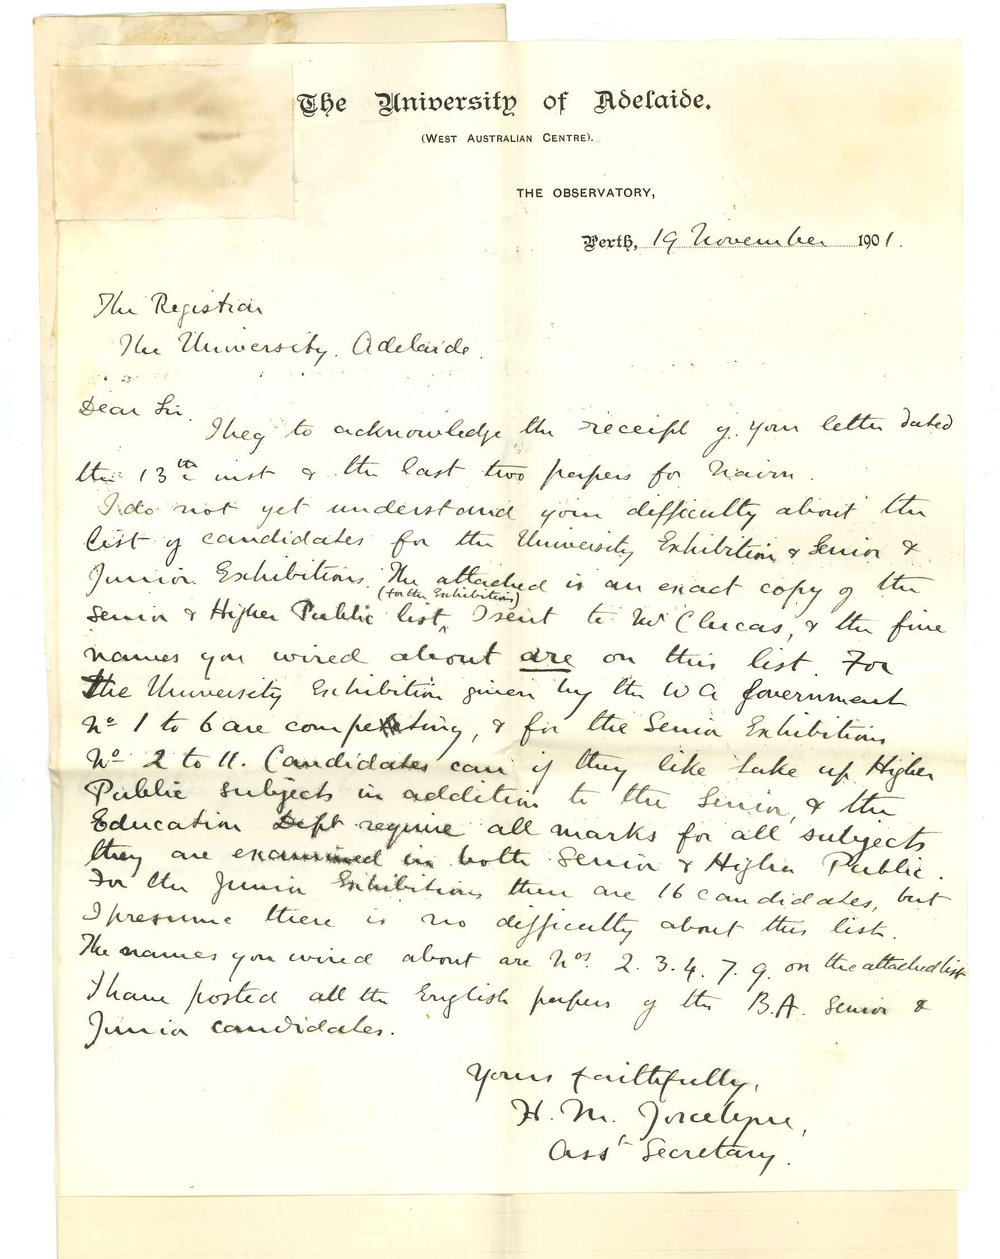 The University of Adelaide.
(West Australian Centre).
The Observatory,
Perth, 19 November 1901.
The Registrar
The University. Adelaide.
Dear Sir,
I beg to acknowledge the receipt of your letter dated
the 13th inst & the last two papers for
I do not yet understand your difficulty about the
list of candidates for the University Exhibition & Senior &
Junior Exhibitions. The attached is an exact copy of the
(for the Exhibitions)
Senior & Higher Public list I sent to Mr Clucas, & the five
names you wired about are on this list. For
the University Exhibition given by the W A Government
No 1 to 6 are competing, & for the Senior Exhibitions
No 2 to 11. Candidates can if they like take up Higher
Public subjects in addition to the Senior, & the
Education Dept require all marks for all subjects
they are examined in both Senior & Higher Public.
For the Junior Exhibitions there are 16 candidates, but
I presume there is no difficulty about this list.
The names you wired about are Nos 2. 3. 4. 7. 9. on the attached list
I have posted all the English papers of the B.A. Senior &
Junior candidates.
Yours faithfully,
H. M. Jocelyne,
Asst Secretary.